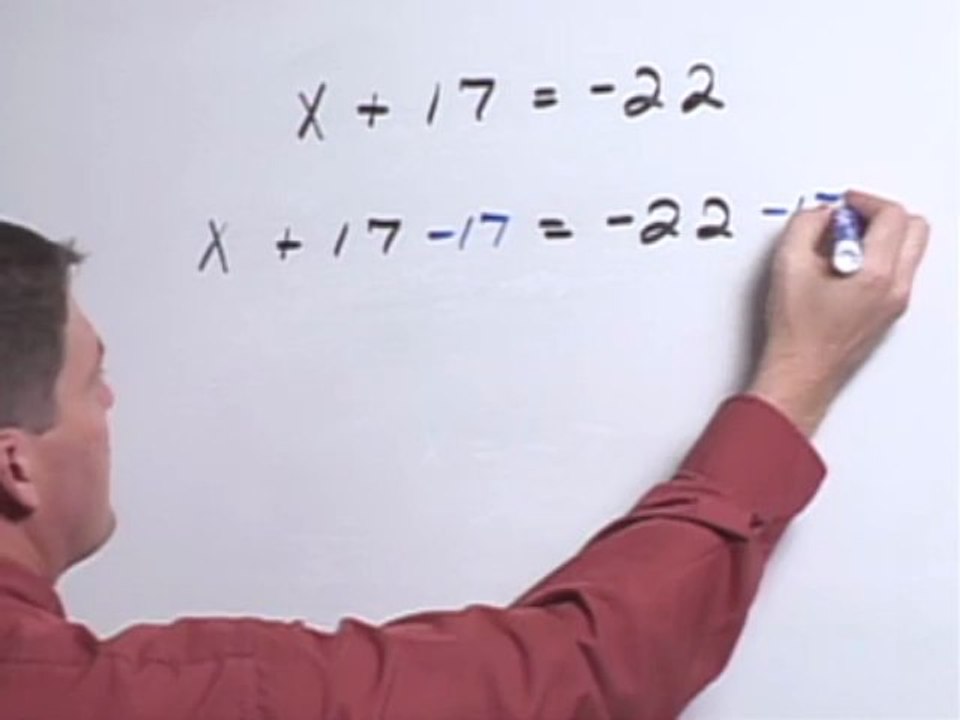 x + 17 = -22
x + 17 -17 = -22 -17